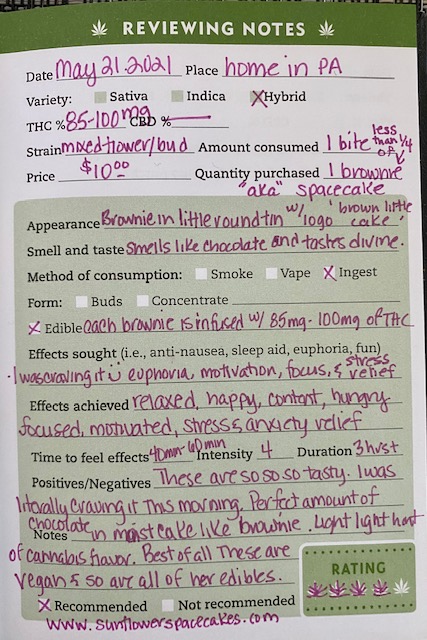 REVIEWING NOTES
Date May 21. 2021 Place home in PA
Variety: Sativa Indica Hybrid
THC % 85-100mg CBD %
Strain mixed flower/bud Amount consumed 1 bite less than 1/4 of
Price $10.00 Quantity purchased 1 brownie
"aka" spacecake
Appearance Brownie in little round tin w/ logo 'brown little cake'
Smell and taste Smells like chocolate and tastes divine.
Method of consumption: Smoke Vape Ingest
Form: Buds Concentrate
Edible each brownie is infused w/ 85mg-100mg of THC
Effects sought (i.e., anti-nausea, sleep aid, euphoria, fun)
I was craving it euphoria, motivation, focus, & stress relief
Effects achieved relaxed, happy, content, hungry
focused, motivated, stress & anxiety relief
Time to feel effects 40min-60min Intensity 4 Duration 3hrs+
Positives/Negatives These are so so so tasty. I was
literally craving it this morning. Perfect amount of
Notes chocolate in moist cake like brownie. Light light hint
of cannabis flavor. Best of all These are
Vegan & so are all of her edibles.
RATING
Recommended Not recommended
www.sunflowerspacecakes.com